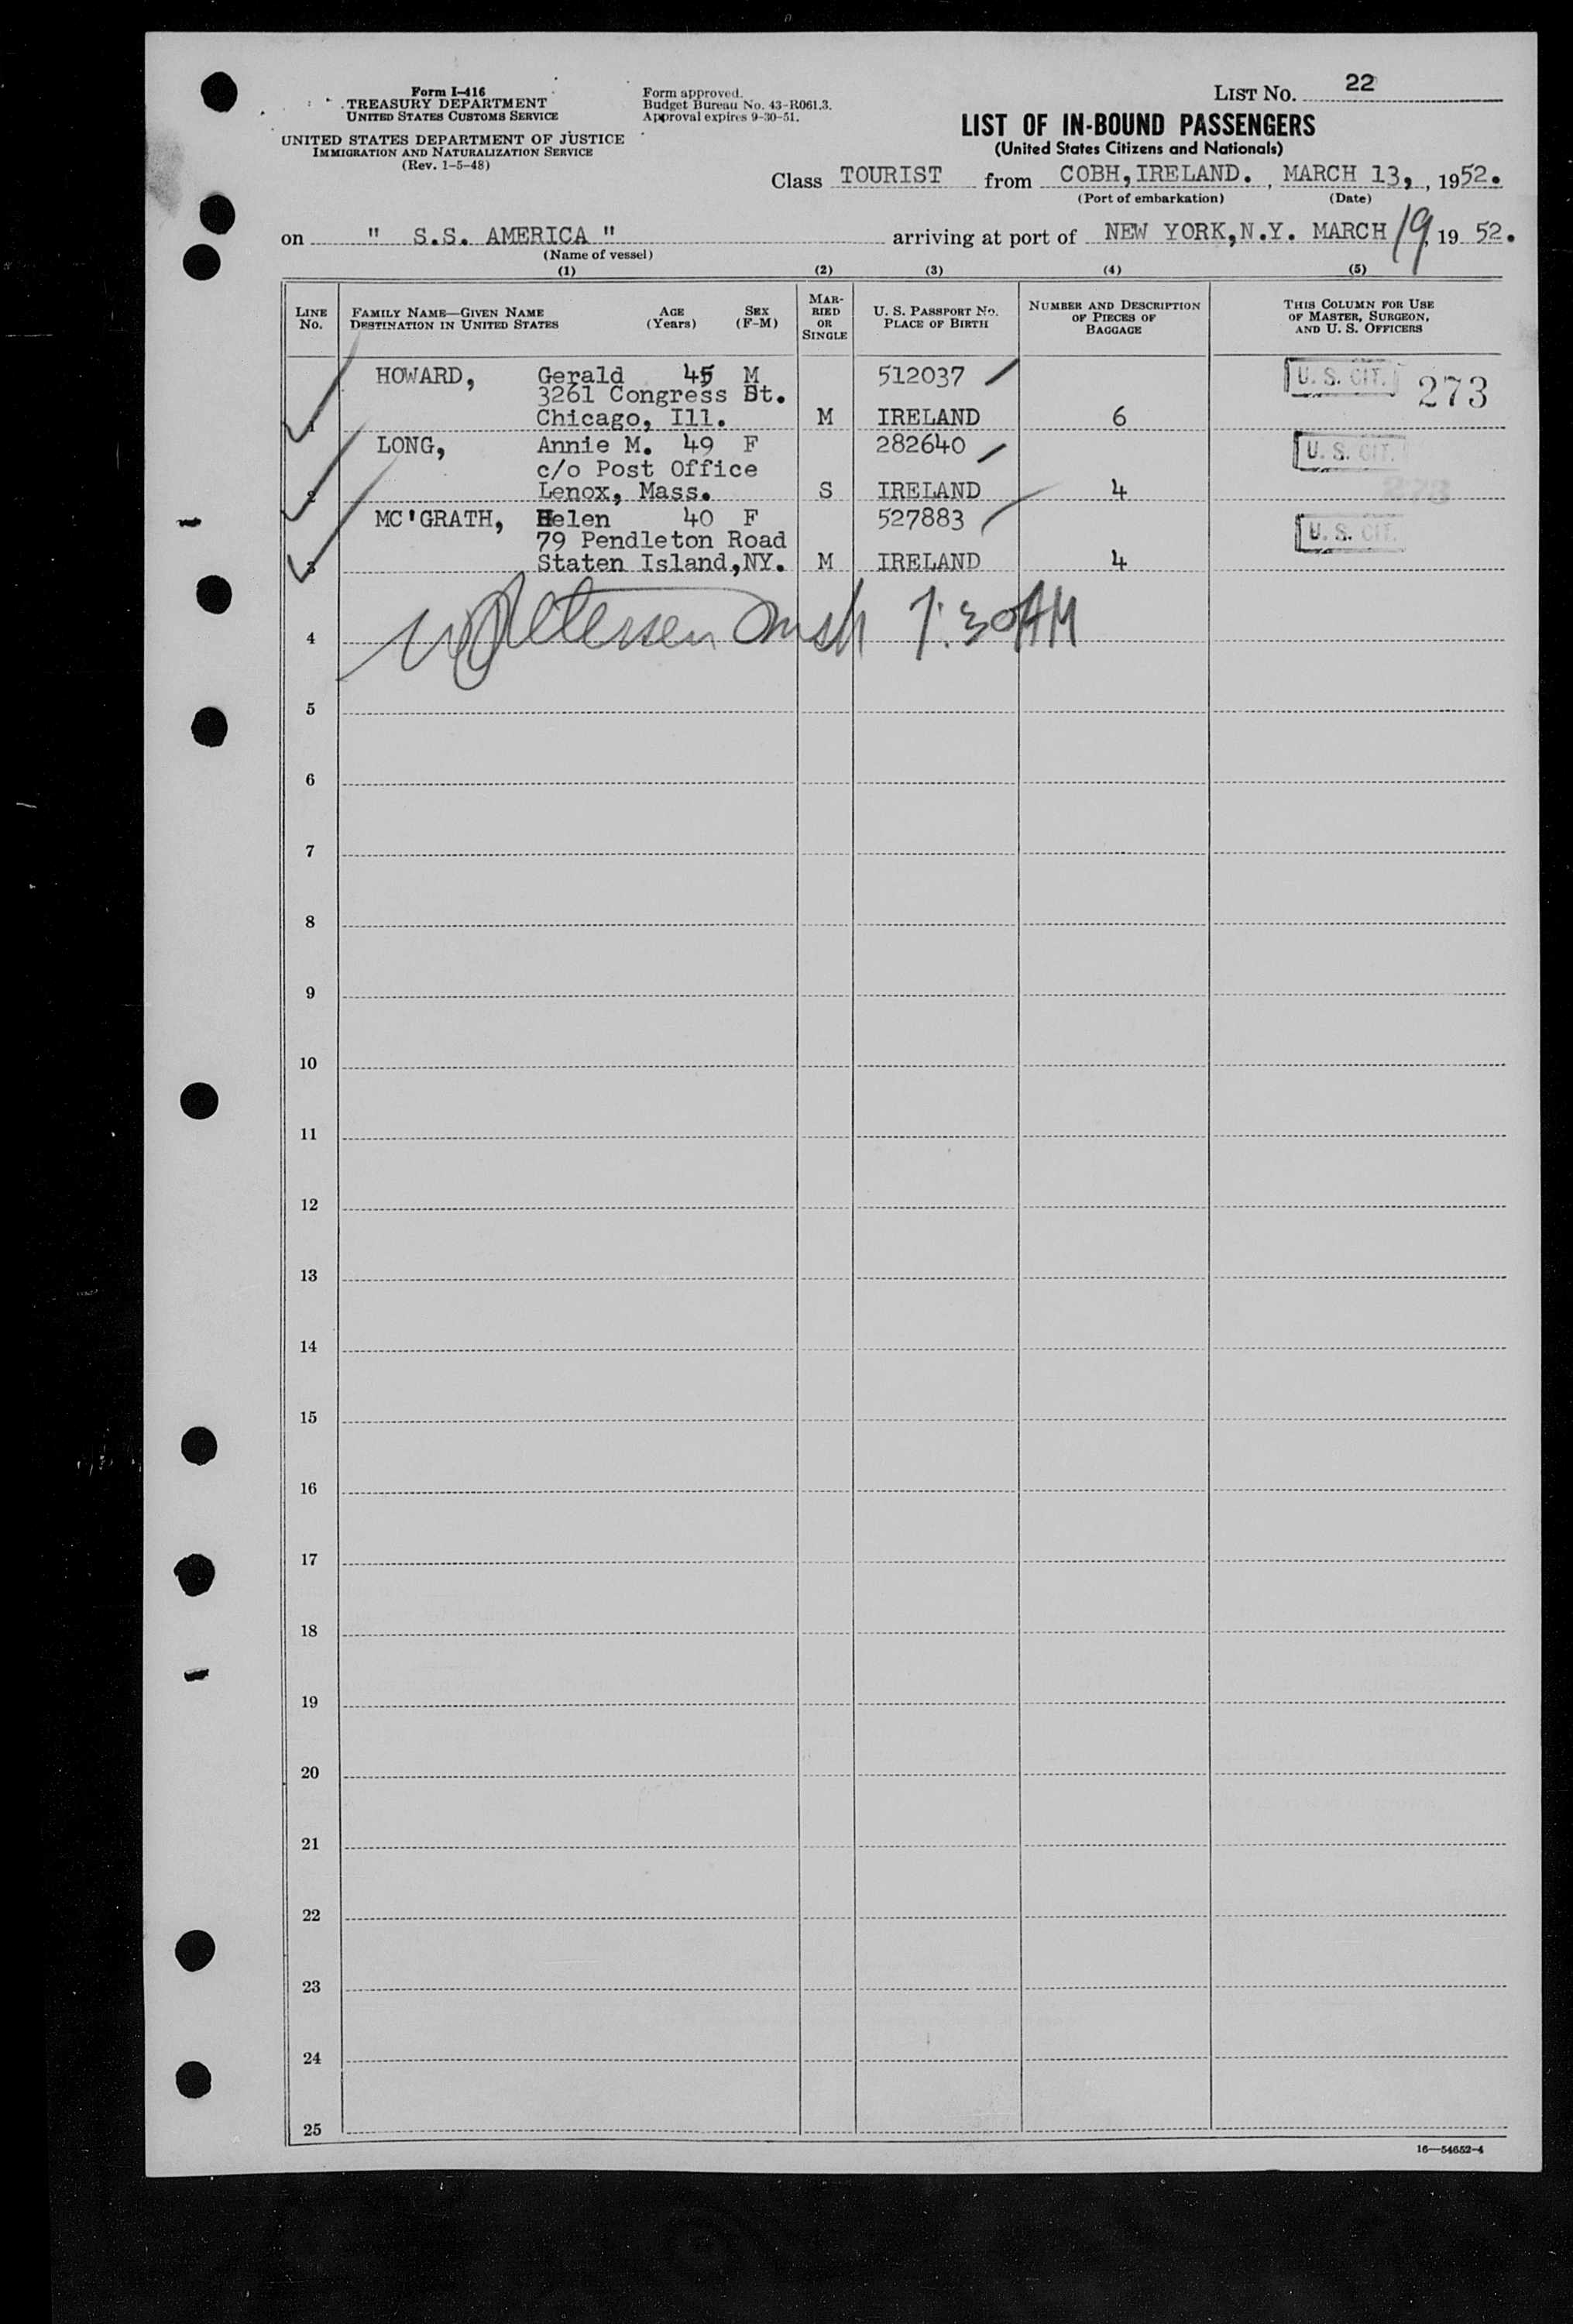 Form I-416
TREASURY DEPARTMENT
UNITED STATES CUSTOMS SERVICE
UNITED STATES DEPARTMENT OF JUSTICE
IMMIGRATION AND NATURALIZATION SERVICE
(Rev. 1-5-48)
Form approved.
Budget Bureau No. 43-R061.3.
Approval expires 9-30-51.
LIST NO. 22
LIST OF IN-BOUND PASSENGERS
(United States Citizens and Nationals)
Class TOURIST from COBH, IRELAND. , MARCH 13, , 1952.
(Port of embarkation) (Date)
on " S.S. AMERICA " arriving at port of NEW YORK, N.Y. MARCH 19, 19 52.
(Name of vessel)
(1) (2) (3) (4) (5)
LINE No.
FAMILY NAME—GIVEN NAME AGE SEX
DESTINATION IN UNITED STATES (Years) (F-M)
MARRIED OR SINGLE
U. S. PASSPORT No.
PLACE OF BIRTH
NUMBER AND DESCRIPTION OF PIECES OF BAGGAGE
THIS COLUMN FOR USE OF MASTER, SURGEON, AND U. S. OFFICERS
HOWARD, Gerald 45 M 512037 U. S. CIT. 273
3261 Congress St.
1 Chicago, Ill. M IRELAND 6
LONG, Annie M. 49 F 282640 U. S. CIT.
c/o Post Office
2 Lenox, Mass. S IRELAND 4 273
MC'GRATH, Helen 40 F 527883 U. S. CIT.
79 Pendleton Road
3 Staten Island, NY. M IRELAND 4
4 7:30 AM
5
6
7
8
9
10
11
12
13
14
15
16
17
18
19
20
21
22
23
24
25
16—54652-4